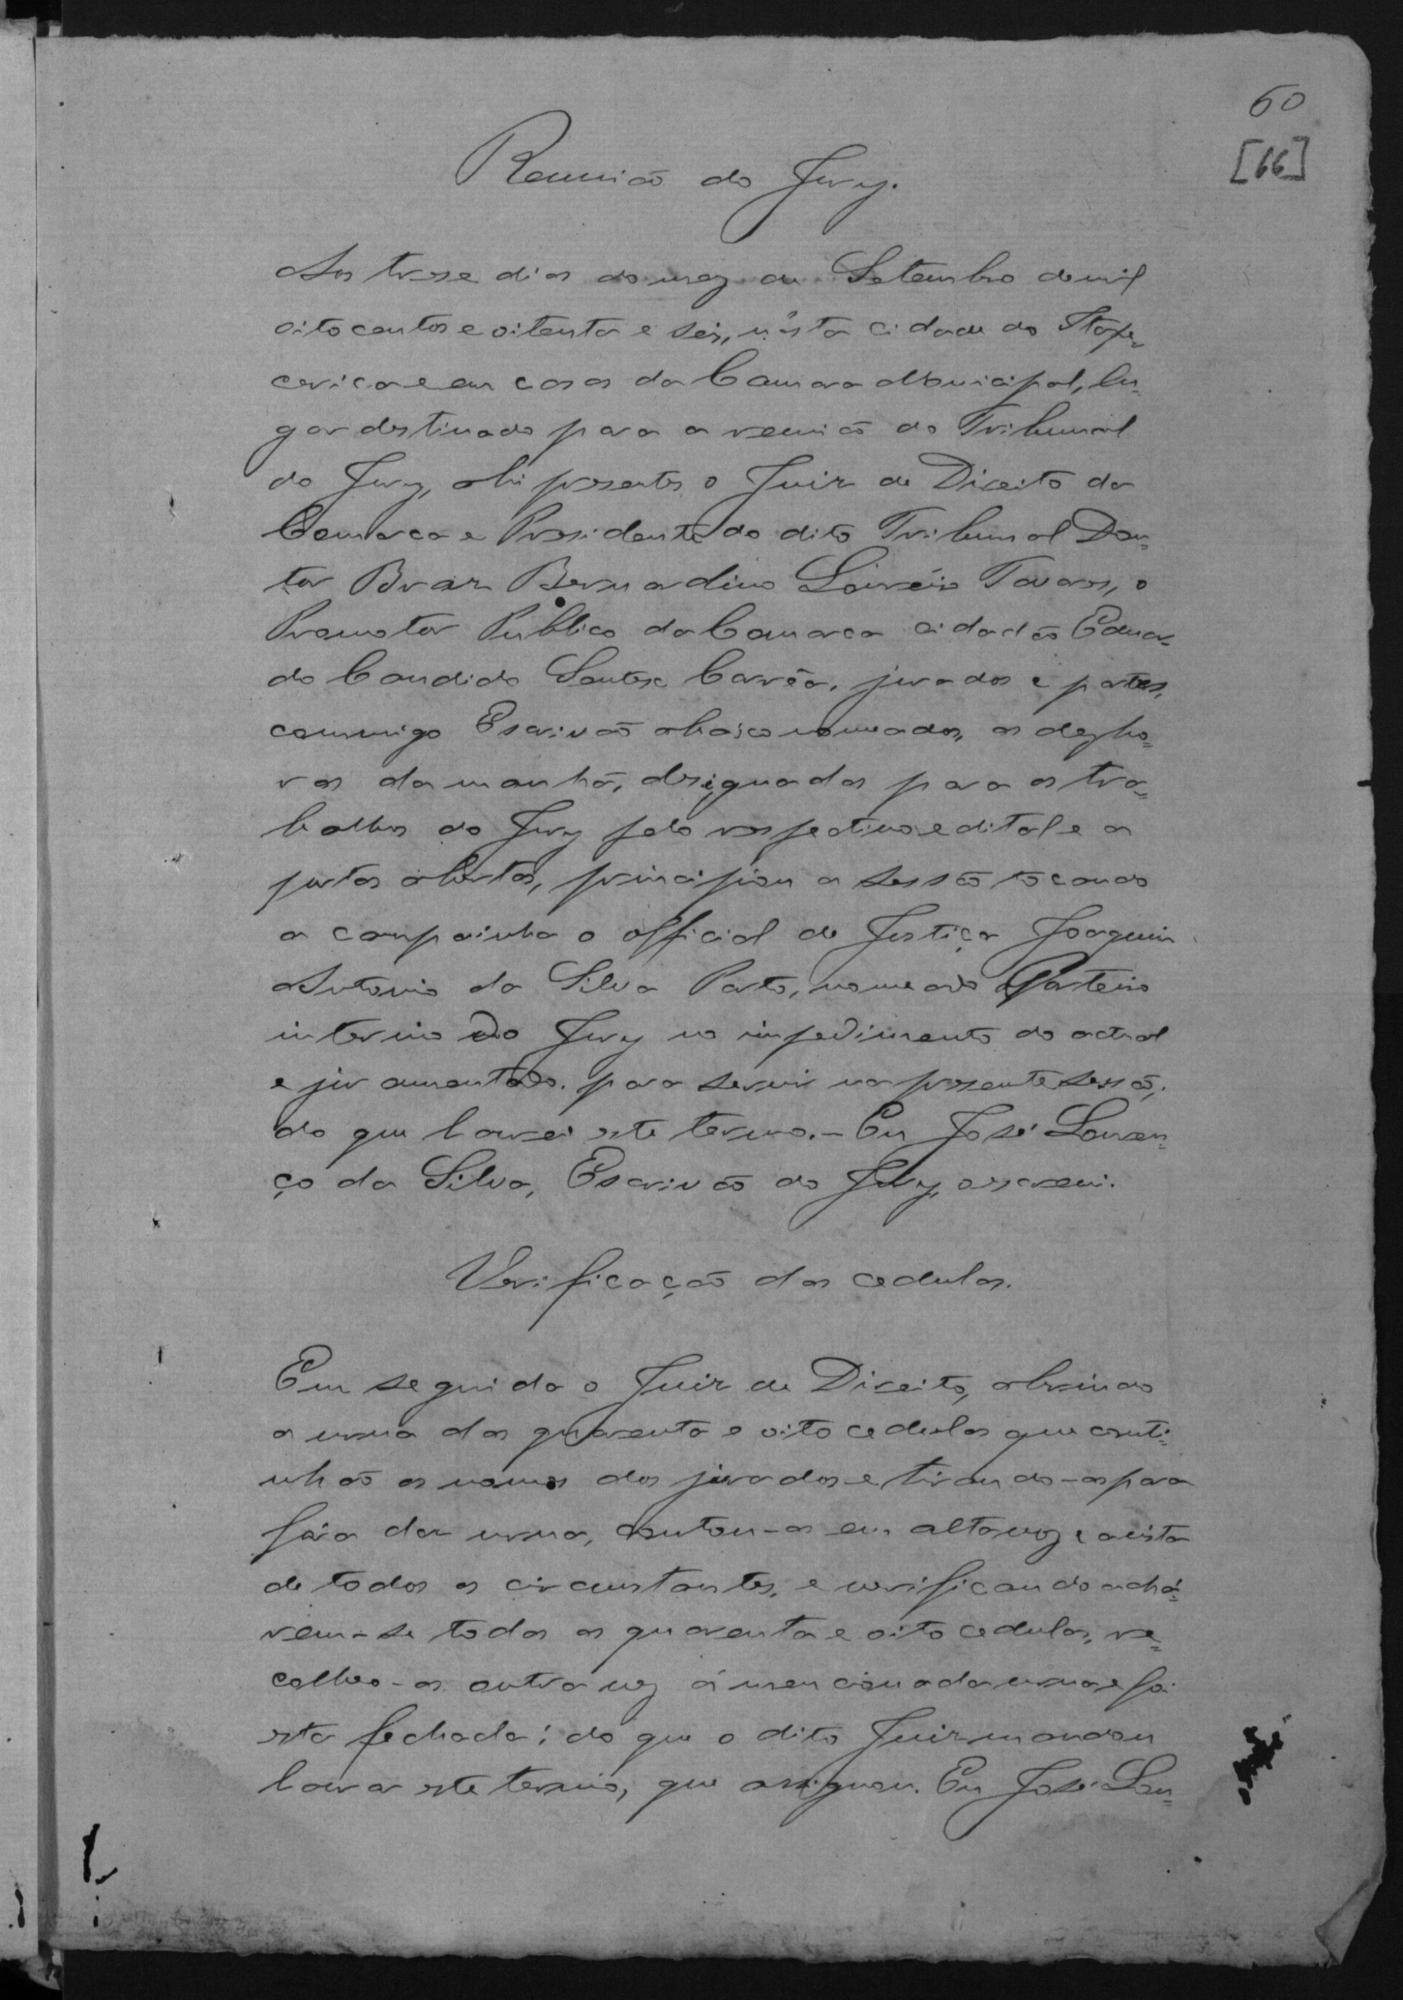 60
[66]
Reunião do Jury.
Aos treze dias do mez de Setembro de mil
oito centos e oitenta e seis, n'esta cidade do Itape-
cerica e em casa da Camara Municipal, lu-
gar destinado para a reunião do Tribunal
do Jury, ahi presentes o Juiz de Direito da
Comarca e Presidente do dito Tribunal Dou-
tor Braz Bernardino Loureiro Tavares, o
Promotor Publico da Comarca cidadão Eduar-
do Candido Corrêa, jurados e partes,
commigo Escrivão abaixo nomeado, as dez ho-
ras da manhã, designadas para os tra-
balhos do Jury pelo respectivo edital e a
portas abertas, principiou a sessão tocando
a campainha o official de Justiça Joaquim
Antonio da Silva Porto, nomeado Porteiro
interino do Jury no impedimento do actual
e juramentado para servir na presente sessão,
do que lavrei este termo. - Eu José Louren-
ço da Silva, Escrivão do Jury, o escrevi.
Verificação das cedulas.
Em seguida o Juiz de Direito, abrindo
a urna das quarenta e oito cedulas que conti-
nhão os nomes dos jurados e tirando-as para
fóra da urna, contou-as em alta voz e a vista
de todos os circunstantes, e verificando achá-
rem-se todas as quarenta e oito cedulas, re-
colheo-as outra vez á mencionada urna e foi
esta fechada; do que o dito Juiz mandou
lavrar este termo, que assignou. Eu José Lou-